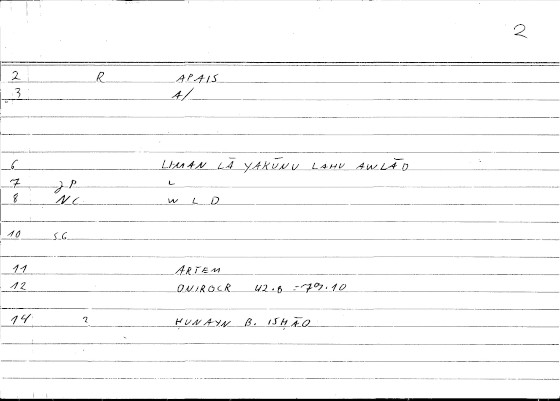 2
2 R APAIS
3 A/
6 LIMAN LĀ YAKŪNU LAHU AWLĀD
7 gP L
8 NC W L D
10 SG
11 ARTEM
12 ONIROCR 42.8 = 79.10
14 2 ḤUNAYN B. ISḤĀQ